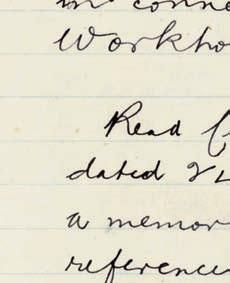 in conne
Workho
Read
dated 2
a memor
reference